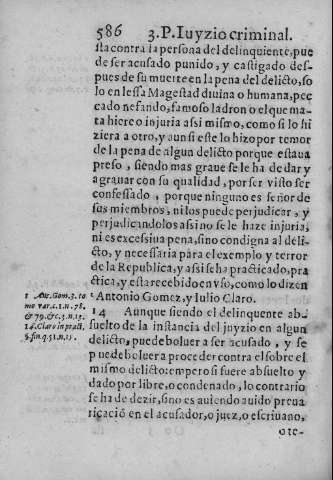 586 3.P. Iuyzio criminal.
sta contra la persona del delinquiente, pue
de ser acusado punido, y castigado des-
pues de su muerte en la pena del delicto, so
lo en lessa Magestad diuina o humana, pec
cado nefando, famoso ladron o el que ma-
ta hiere o injuria a si mismo, como si lo hi
ziera a otro, y aun si este lo hizo por temor
de la pena de algun delicto porque estaua
preso, siendo mas graue se le ha de dar y
agrauar con su qualidad, por ser visto ser
confessado, porque ninguno es señor de
sus miembros, ni los puede perjudicar, y
perjudicandolos assi no se le haze injuria,
ni es excessiua pena, sino condigna al deli-
cto, y necessaria para el exemplo y terror
de la Republica, y assi se ha practicado, pra
ctica, y esta recebido en vso, como lo dizen
1 Antonio Gomez, y Iulio Claro.
1 Ant. Gom. 3. to
mo var. c. 1. n. 78.
& 79. & c. 3. n. 15.
14. Claro in pract.
§. fin. q. 51. n. 15.
14 Aunque siendo el delinquente ab
suelto de la instancia del juyzio en algun
delicto, puede boluer a ser acusado, y se
puede boluer a proceder contra el sobre el
mismo delicto: empero si fuere absuelto y
dado por libre, o condenado, lo contrario
se ha de dezir, sino es auiendo auido preua
ricació en el acusador, o juez, o escriuano,
o te-